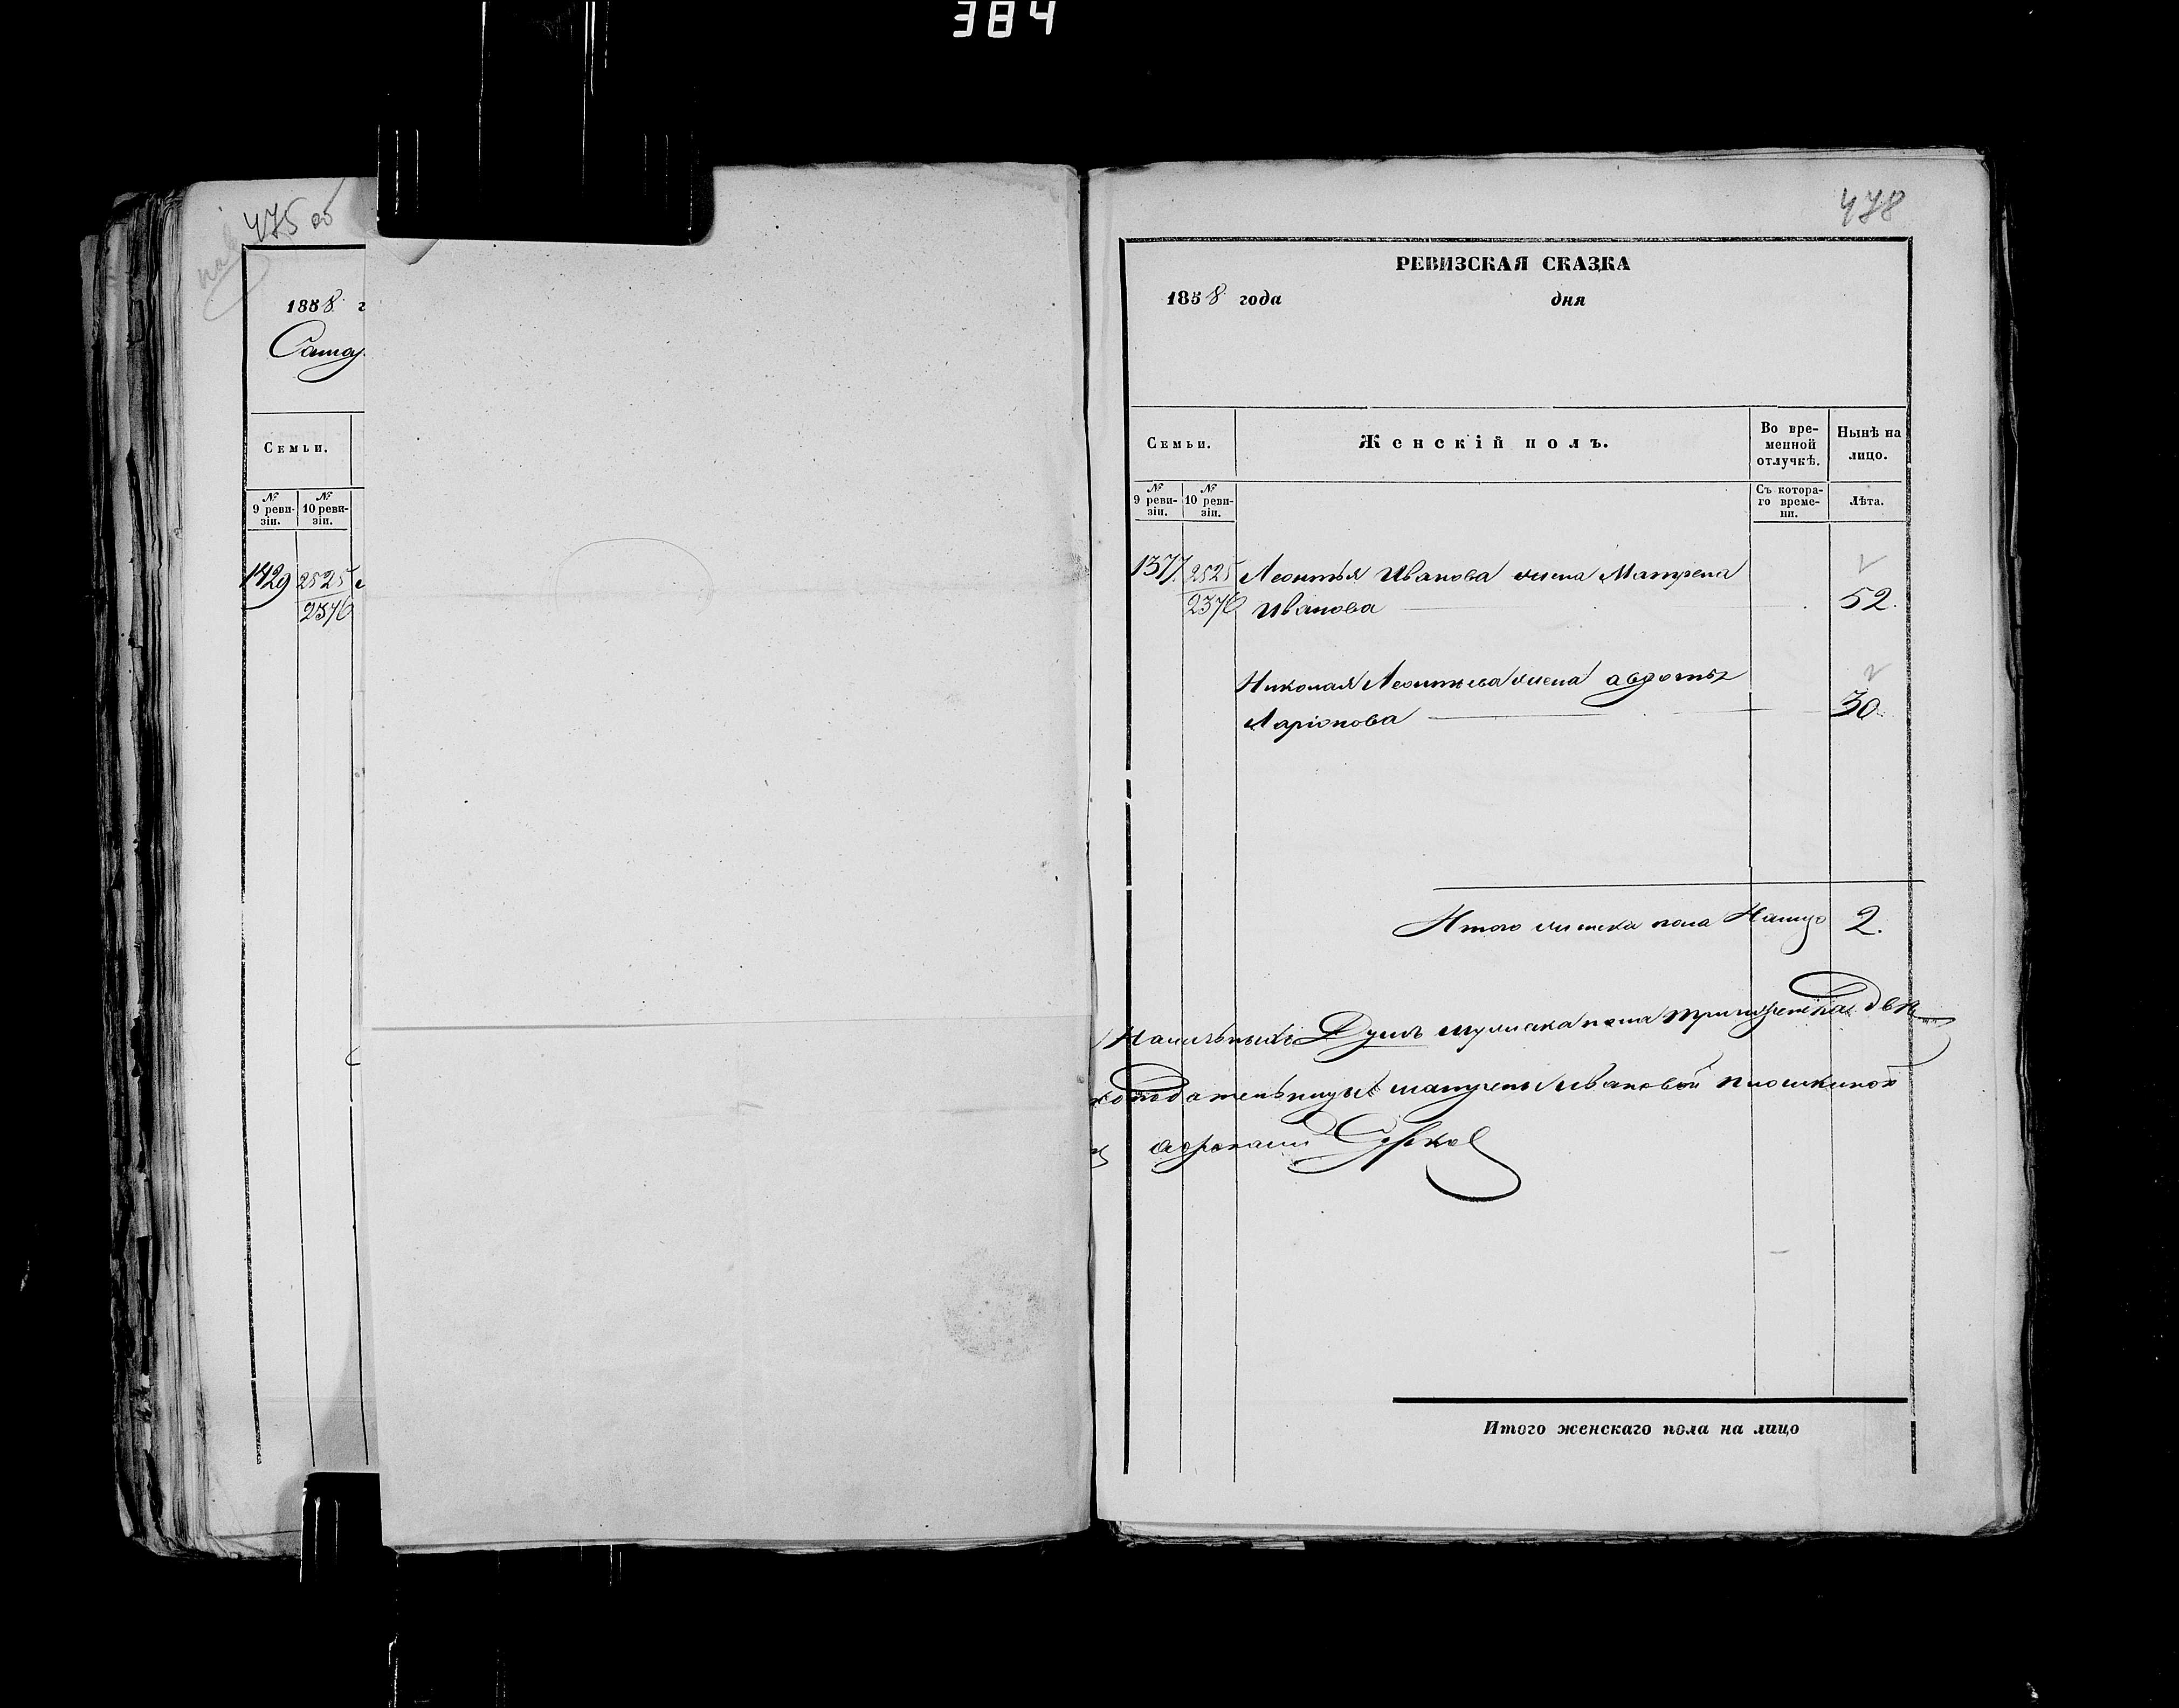 384
475 об
1858 г
Самар
Семьи.
№ 9 реви-зіи.
№ 10 реви-зіи.
1429 2525
2376
478
РЕВИЗСКАЯ СКАЗКА
1858 года дня
Семьи.
Женскій полъ.
Во вре-менной отлучкѣ.
Нынѣ на лицо.
№ 9 реви-зіи.
№ 10 реви-зіи.
Съ котора-го време-ни.
Лѣта.
1377. 2525 Леонтья Иванова жена Матрена
2376 Иванова 52.
Николая Леонтьева жена авдотья
Ларіонова 30
Итого женска пола Налицо 2.
Душъ мужиска пола три женска двѣ
матрены ивановой плошкиной